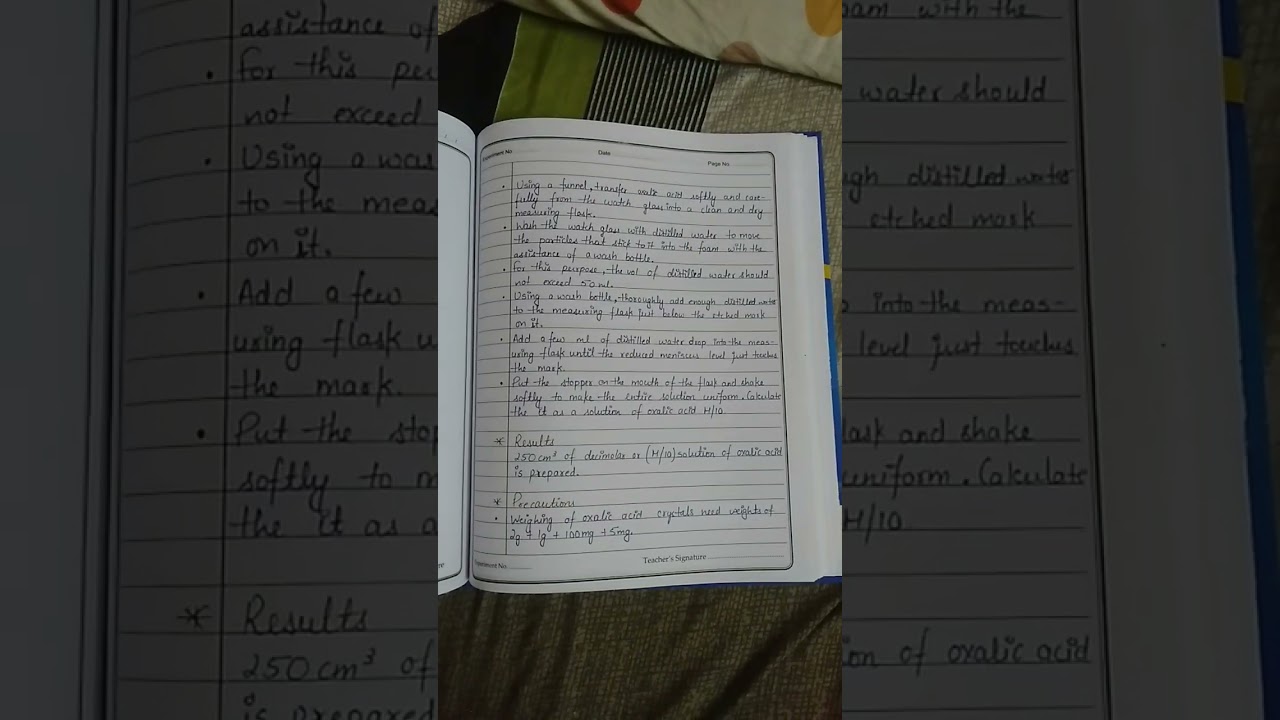 Experiment No.
Date
Page No.
• Using a funnel, transfer oxalic acid softly and care-
fully from the watch glass into a clean and dry
measuring flask.
• Wash the watch glass with distilled water to move
the particles that stick to it into the foam with the
assistance of a wash bottle.
• For this purpose, the vol of distilled water should
not exceed 50 ml.
• Using a wash bottle, thoroughly add enough distilled water
to the measuring flask just below the etched mark
on it.
• Add a few ml of distilled water drop into the meas-
uring flask until the reduced meniscus level just touches
the mark.
• Put the stopper on the mouth of the flask and shake
softly to make the entire solution uniform. Calculate
the it as a solution of oxalic acid M/10
* Results
250 cm³ of decimolar or (M/10) solution of oxalic acid
is prepared.
* Precautions
• Weighing of oxalic acid crystels need weights of
2g + 1g + 100mg + 5mg.
Teacher's Signature
Experiment No.